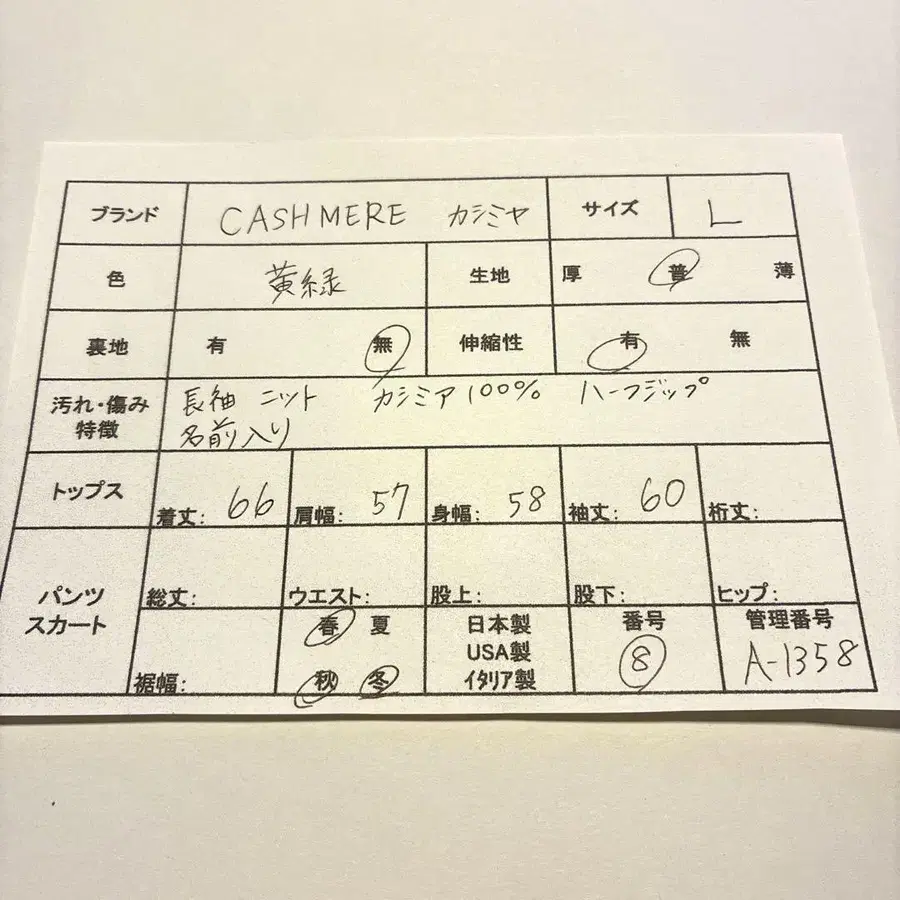 ブランド CASHMERE カシミヤ サイズ L
色 黄緑 生地 厚 普 薄
裏地 有 無 伸縮性 有 無
汚れ・傷み 特徴 長袖 ニット カシミア100% ハーフジップ
名前入り
トップス 着丈: 66 肩幅: 57 身幅: 58 袖丈: 60 裄丈:
パンツ スカート 総丈: ウエスト: 股上: 股下: ヒップ:
裾幅: 春 夏 秋 冬 日本製 USA製 イタリア製 番号 8 管理番号 A-1358